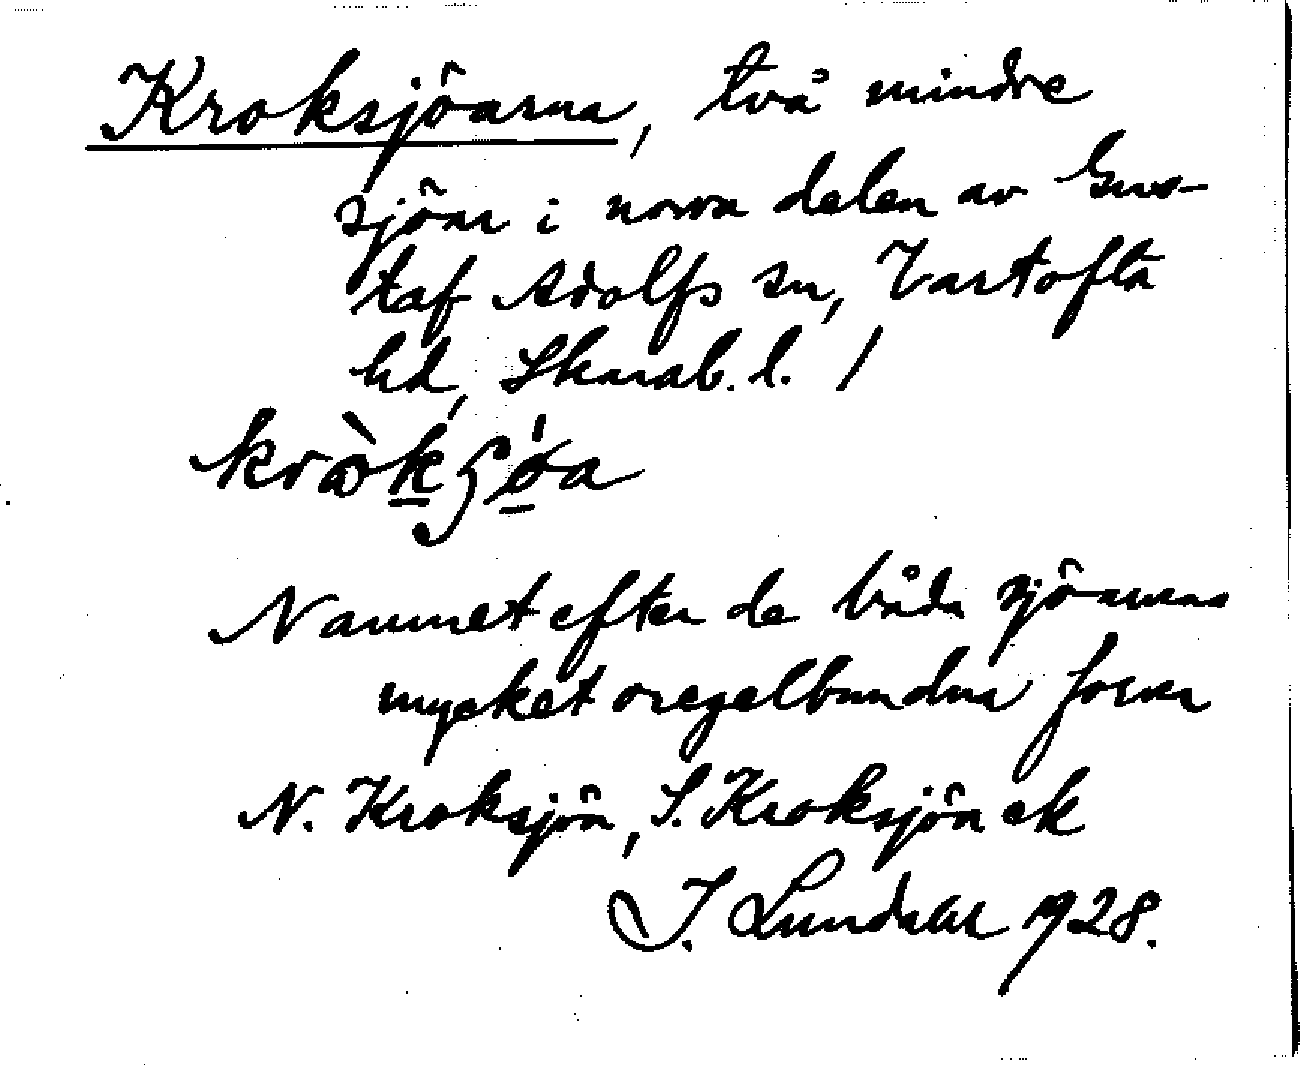 Kroksjöarna, två mindre
sjöar i norra delen av Gus-
taf Adolfs sn, Vartofta
hd, Skarab. l. /
kràksǿa
Namnet efter de båda sjöarnas
mycket oregelbundna form
N. Kroksjön, S. Kroksjön ek
J. Lundahl 1928.